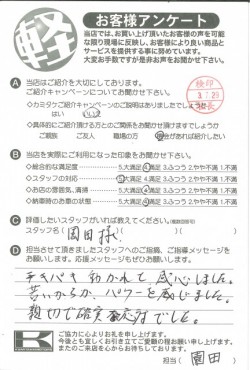 軽
お客様アンケート
当店では、お買い上げ頂いたお客様の声を可能
な限り現場に反映し、お客様により良い商品と
サービスを提供する事に努めています。
大変お手数ですが是非お声をお聞かせ下さい。
A 当店はご紹介を大切にしております。
ご紹介キャンペーンについてお聞かせ下さい。
◇カミタケご紹介キャンペーンのご説明はありましたでしょうか
はい いいえ
◇具体的にご紹介頂ける方とのご関係をお聞かせ頂けますでしょうか
ご親戚 ご友人 職場の方
B 当店を実際にご利用になった印象をお聞かせ下さい。
◇総合的な満足度 5.大満足 4.満足 3.ふつう 2.やや不満 1.不満
◇スタッフの対応 5.大満足 4.満足 3.ふつう 2.やや不満 1.不満
◇お店の雰囲気、清掃 5.大満足 4.満足 3.ふつう 2.やや不満 1.不満
◇納車時のお車の状態 5.大満足 4.満足 3.ふつう 2.やや不満 1.不満
C 評価したいスタッフがいれば教えてください。
スタッフ名( 園田様 )
D 担当させて頂きましたスタッフへのご指摘、ご指導メッセージを
お願いします。応援メッセージもぜひお願いします。
手パキ動かれて感心しました。
若いからか、パワーを感じました。
親切で確実な応対でした。
K
ご協力に心よりお礼を申し上げます。
今後とも宜しくお引き立てご愛顧の程お願い申し上げます。
またのご来店を心からお待ちしております。
担当( 園田 )